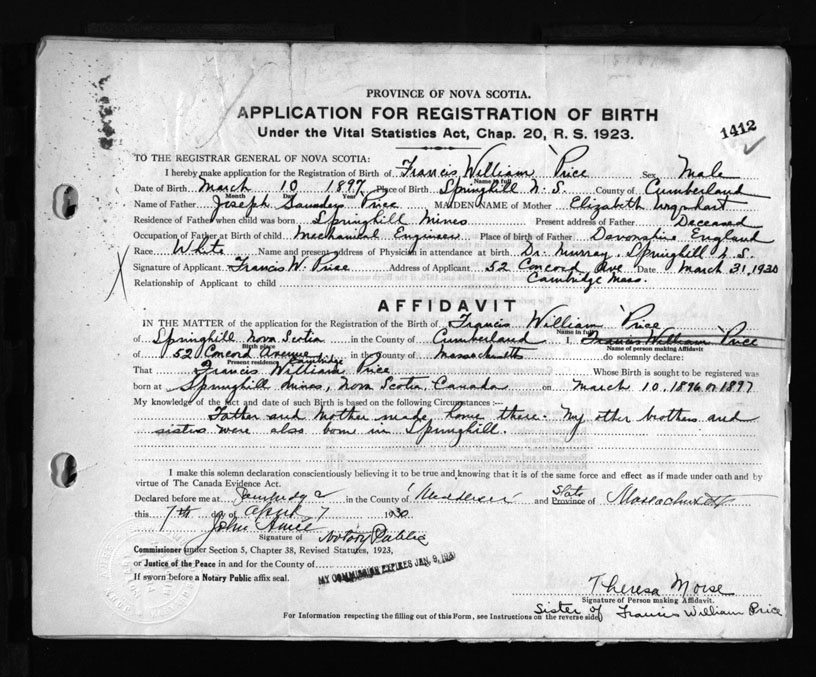 PROVINCE OF NOVA SCOTIA.
APPLICATION FOR REGISTRATION OF BIRTH
Under the Vital Statistics Act, Chap. 20, R. S. 1923.
1412
TO THE REGISTRAR GENERAL OF NOVA SCOTIA:
I hereby make application for the Registration of Birth of Francis William Price Sex Male
Name in full
Date of Birth March 10 1897 Place of Birth Springhill N. S. County of Cumberland
Month Day Year
Name of Father Joseph Saunders Price MAIDEN NAME of Mother Elizabeth Urquhart
Residence of Father when child was born Springhill Mines Present address of Father Deceased
Occupation of Father at Birth of child Mechanical Engineer Place of birth of Father Devonshire England
Race White Name and present address of Physician in attendance at birth Dr. Murray, Springhill N. S.
Signature of Applicant Francis W. Price Address of Applicant 52 Concord Ave Date March 31, 1930
Relationship of Applicant to child Cambridge Mass.
AFFIDAVIT
IN THE MATTER of the application for the Registration of the Birth of Francis William Price
Name in full
of Springhill Nova Scotia in the County of Cumberland I, Francis William Price
Birth place Name of person making Affidavit
of 52 Concord Avenue Cambridge in the County of Massachusetts do solemnly declare:
Present residence
That Francis William Price Whose Birth is sought to be registered was
born at Springhill Mines, Nova Scotia, Canada on March 10, 1896 or 1897
My knowledge of the fact and date of such Birth is based on the following Circumstances :—
Father and Mother made home there. My other brothers and
sisters were also born in Springhill.
I make this solemn declaration conscientiously believing it to be true and knowing that it is of the same force and effect as if made under oath and by
virtue of The Canada Evidence Act.
Declared before me at Cambridge in the County of Middlesex and Province of State Massachusetts
this 7th day of April 7 1930
John
Signature of Notary Public
Commissioner under Section 5, Chapter 38, Revised Statutes, 1923,
or Justice of the Peace in and for the County of
If sworn before a Notary Public affix seal.
MY COMMISSION EXPIRES JAN. 9, 193
Theresa Morse
Signature of Person making Affidavit.
Sister of Francis William Price
For Information respecting the filling out of this Form, see Instructions on the reverse side.